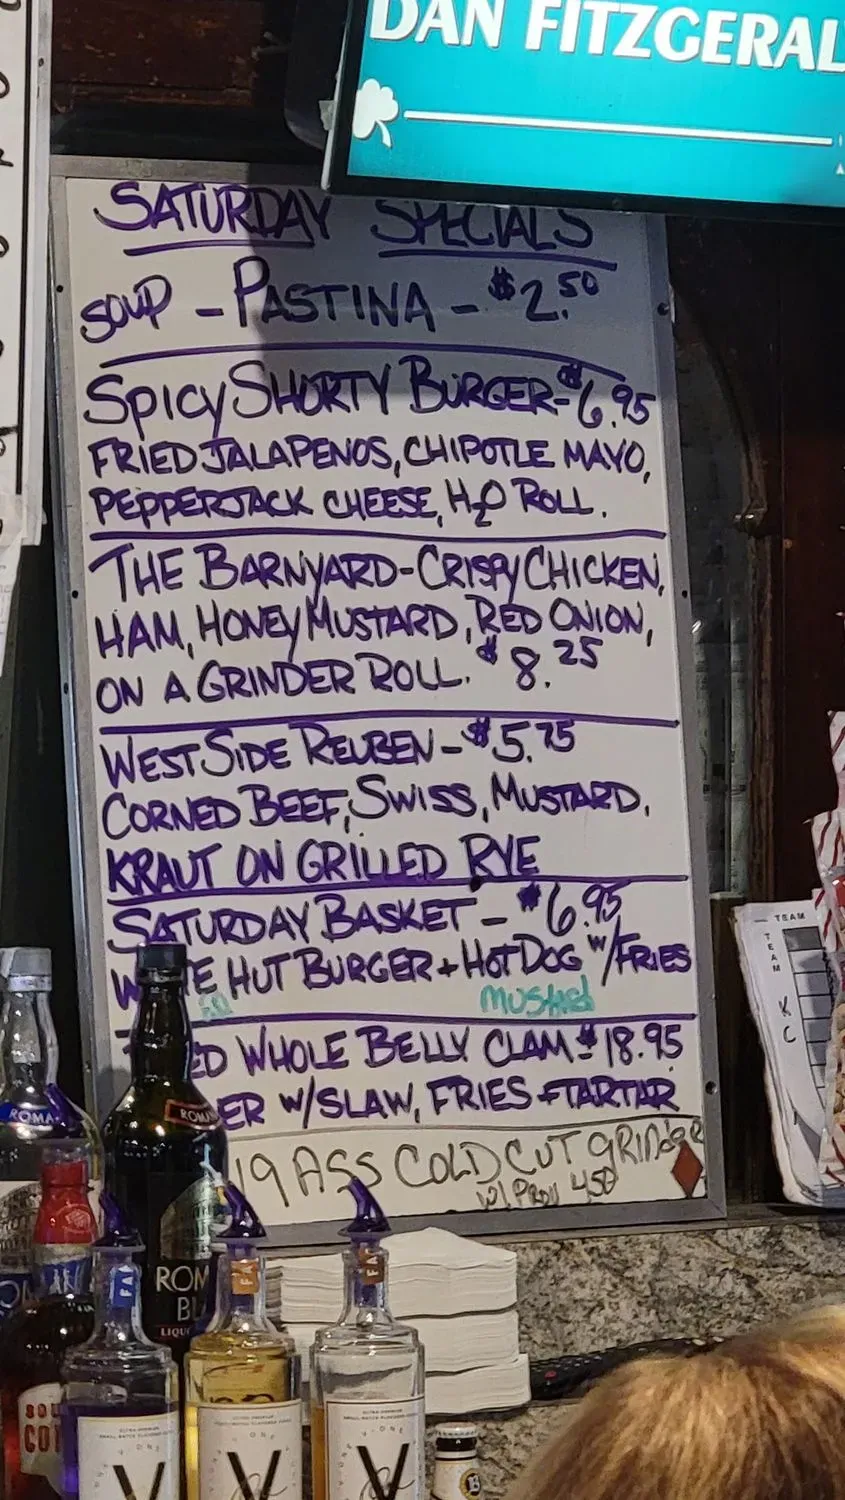 DAN FITZGERAL
SATURDAY SPECIALS
SOUP - PASTINA - $2.50
SPICY SHORTY BURGER - $6.95
FRIED JALAPENOS, CHIPOTLE MAYO,
PEPPERJACK CHEESE, H2O ROLL.
THE BARNYARD - CRISPY CHICKEN,
HAM, HONEY MUSTARD, RED ONION,
ON A GRINDER ROLL. $8.25
WEST SIDE REUBEN - $5.75
CORNED BEEF, SWISS, MUSTARD,
KRAUT ON GRILLED RYE
SATURDAY BASKET - $6.95
HUT BURGER + HOT DOG w/FRIES
MUSTARD
ED WHOLE BELLY CLAM - $18.95
ER W/SLAW, FRIES + TARTAR
19 ASS COLD CUT GRINDER
w/ PROV 450
TEAM
TEAM
K
C
ROMA
ROM
BL
LIQU
SOU
CO
V
V
V